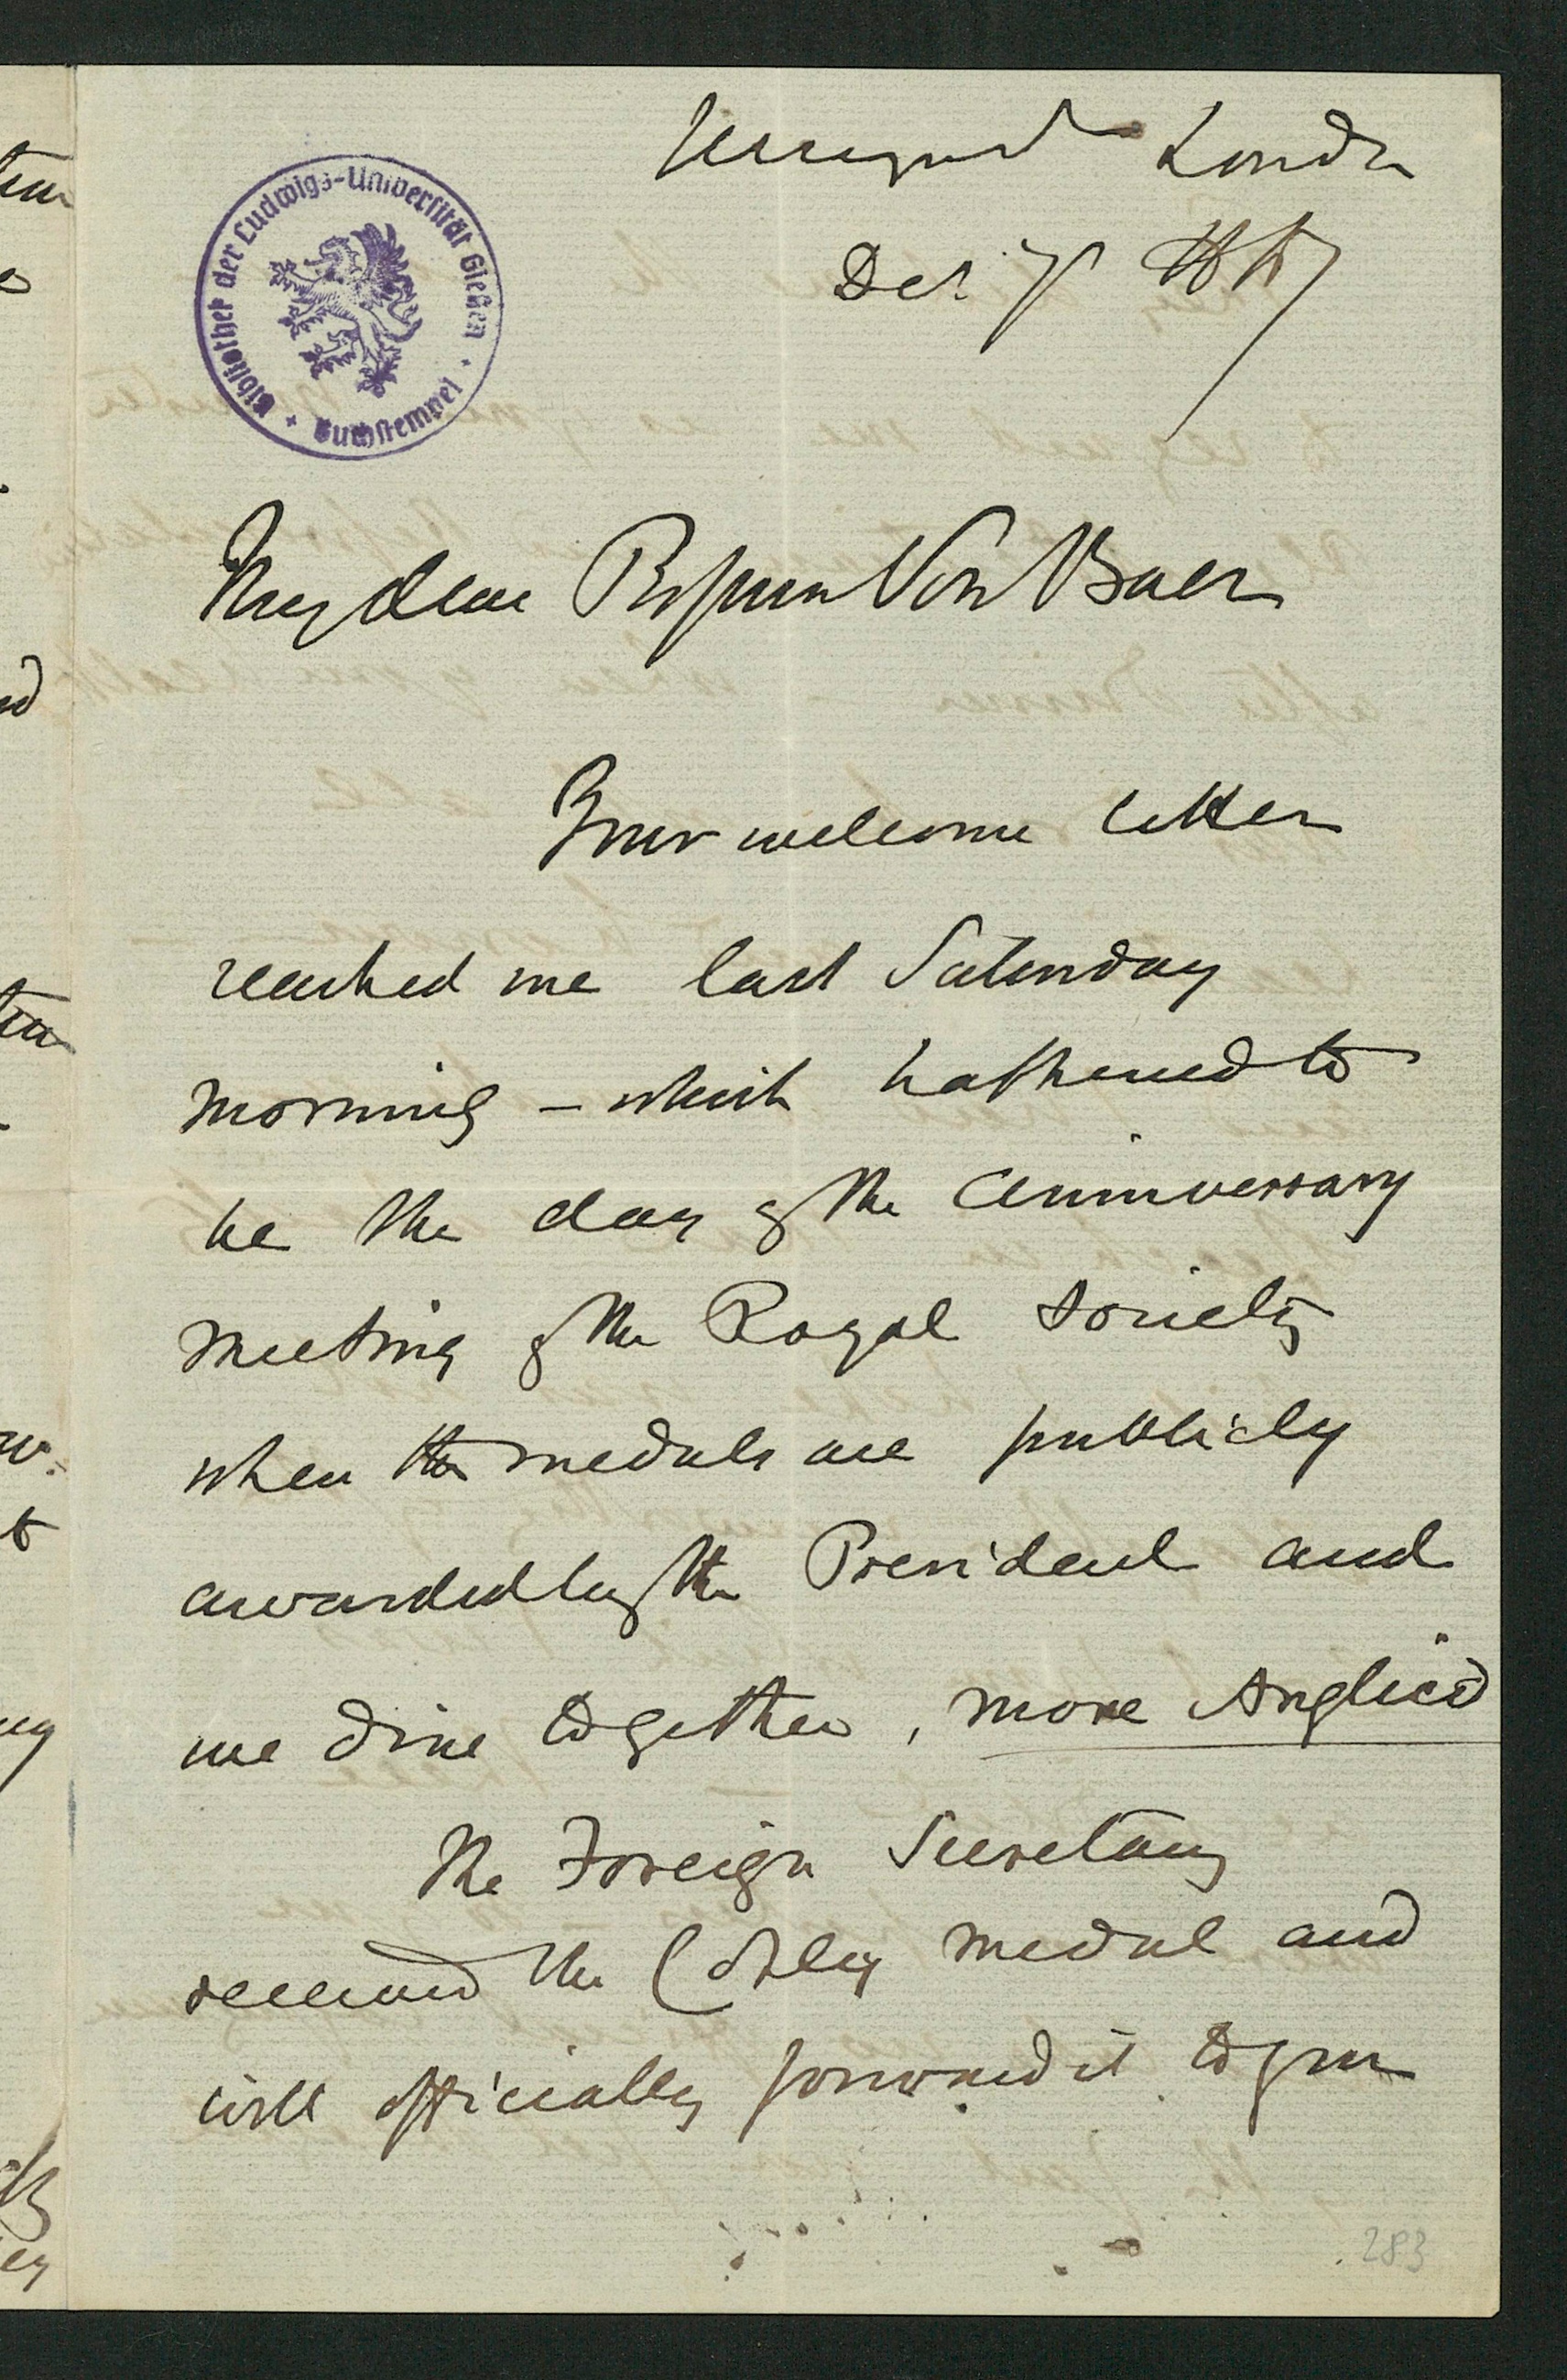 Jermyn St London
Dec 7th 1867
Bibliothek der Ludwigs-Universität Gießen
Buchstempel
My dear Professor Von Baer
Your welcome letter
reached me last Saturday
morning – which happened to
be the day of the Anniversary
meeting of the Royal Society
when the medals are publicly
awarded by the President and
we dine together, more Anglico
The Foreign Secretary
received the Copley medal and
will officially forward it to you
283